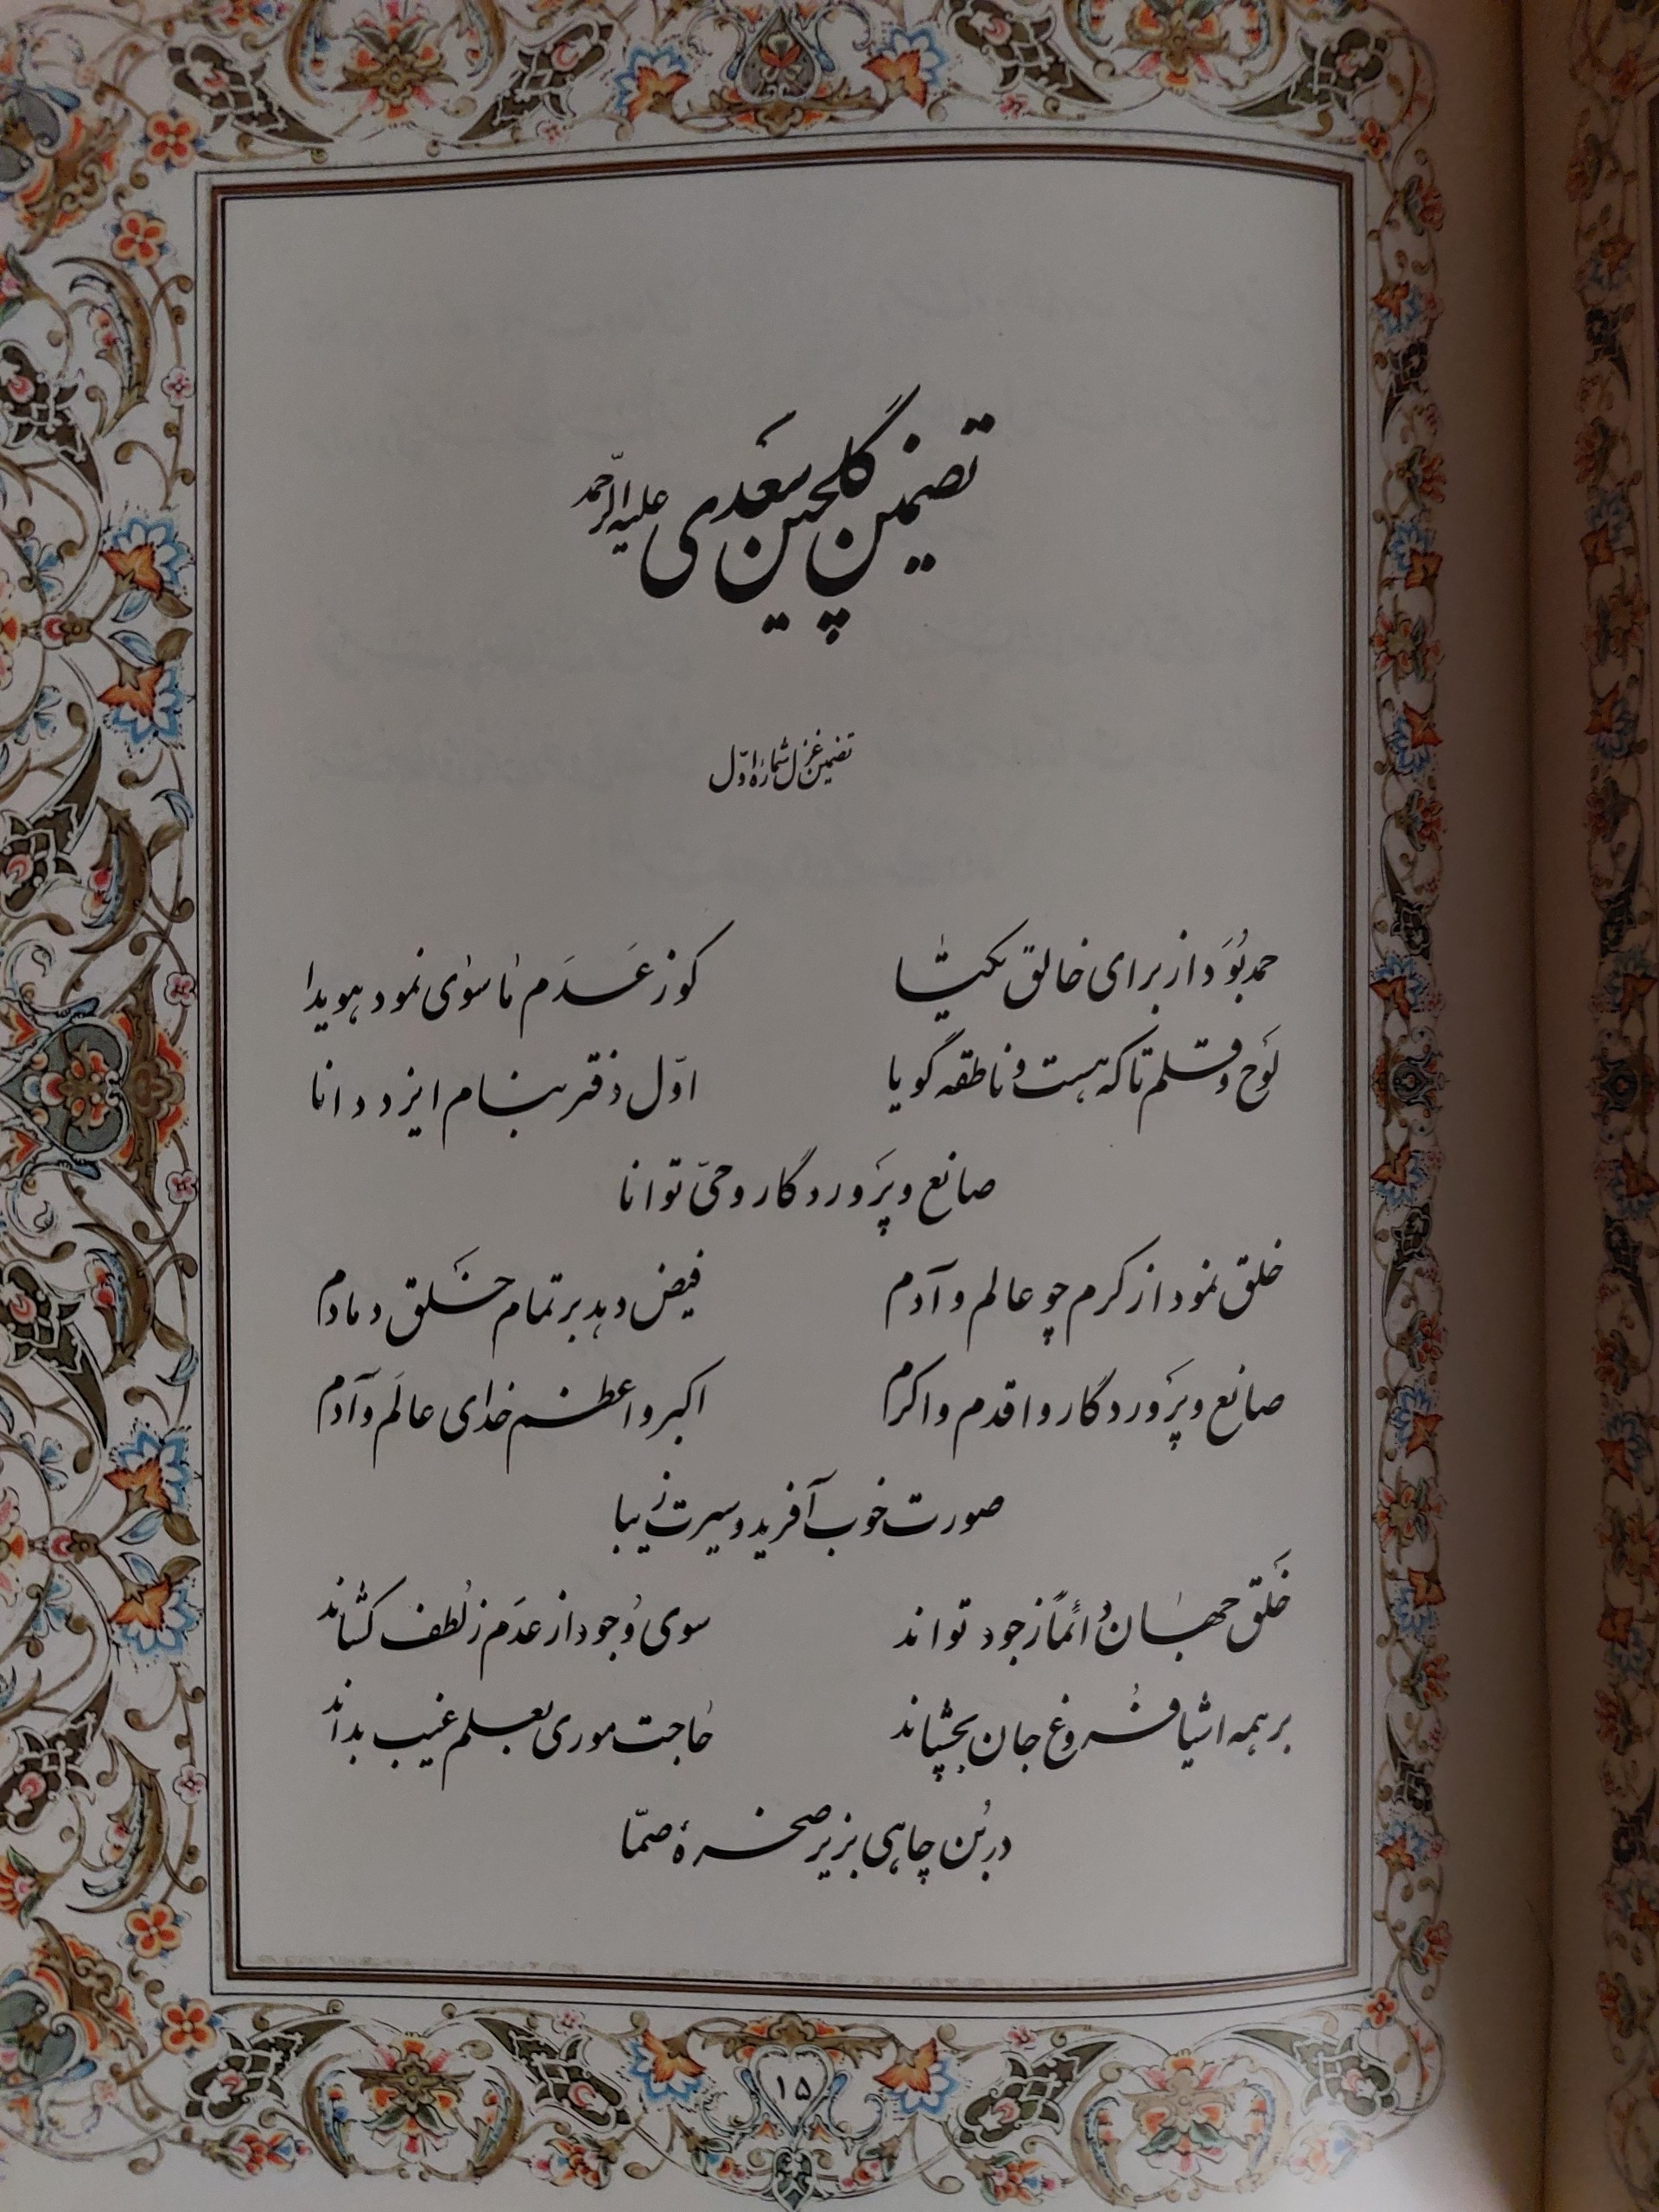 تضمین گلچین سعدی علیه الرّحمه
تضمین غزل شمارهٔ اوّل
حمد بُوَد از برای خالق یکتا کوز عَدَم ماسوٰی نمود هویدا
لَوح و قلم تا که هست و ناطقه گویا اوّل دفتر بنام ایزد دانا
صانع و پَروردگار و حیّ توانا
خلق نمود از کرم چو عالم و آدم فیض دهد بر تمام خَلق دمادم
صانع و پَروردگار و اقدم و اکرم اکبر و اعظم خدای عالَم و آدم
صورت خوب آفرید و سیرت زیبا
خَلق جهان دائماً ز جود تواند سوی وُجود از عدَم ز لُطف کشاند
بر همه اشیا فُروغ جان بچشاند حاجت موری بعلم غیب بداند
در بُن چاهی بزیر صخرهٔ صمّا
۱۵